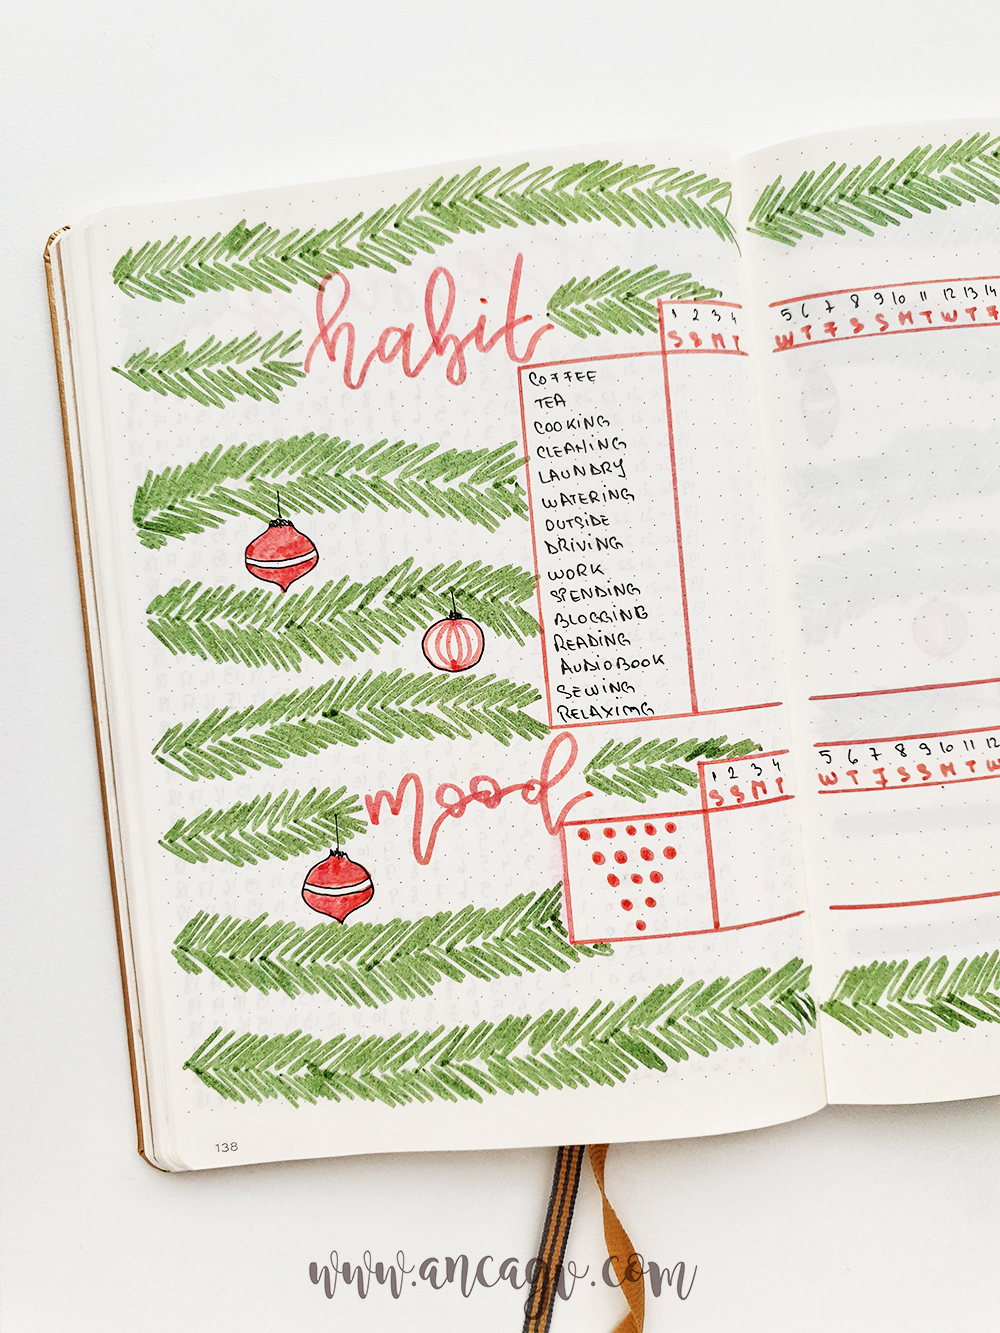 habit
1 2 3 4
S S M T
5 6 7 8 9 10 11 12 13 14
W T F S S M T W T F
COFFEE
TEA
COOKING
CLEANING
LAUNDRY
WATERING
OUTSIDE
DRIVING
WORK
SPENDING
BLOGGING
READING
AUDIOBOOK
SEWING
RELAXING
mood
1 2 3 4
S S M T
5 6 7 8 9 10 11 12
W T F S S M T W
138
www.ancagv.com